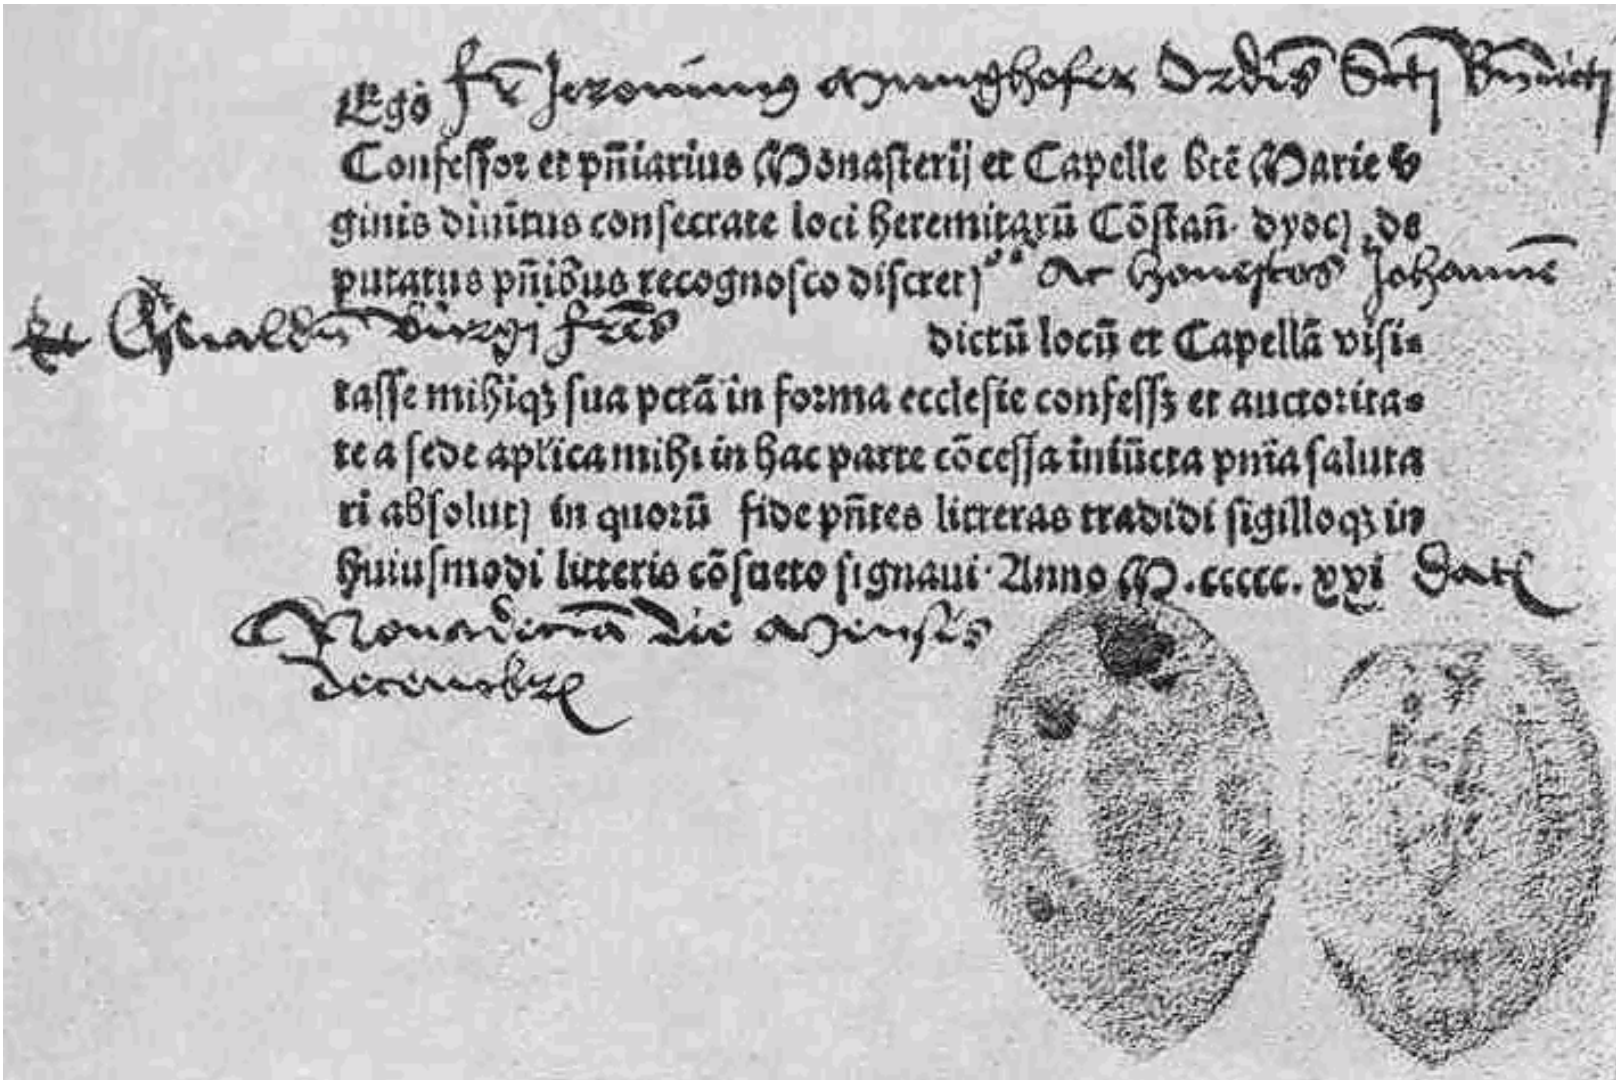 Ego fr̄ Jeronimus Munghofer Ordīs Scti Bn̄dicti
Confessor et pn̄iarius Mōnasterij et Capelle btē Marie v
ginis diuītus consecrate loci heremitarū Cōstan̄. dyoc̄ de
putatus pn̄ibus recognosco discretos Ac honestos Johannē
Et Oswaldū bürgi fr̄es dictū locū et Capellā visi-
tasse mihiqꝫ sua pctā in forma ecclesie confessꝫ et auctorita-
te a sede aplica mihi in hac parte cōcessa iniūcta pnīa saluta
ri absolutꝭ in quorū fide pn̄tes litteras tradidi sigilloqꝫ in
huiusmodi litteris cōsueto signaui. Anno M.ccccc.xxi Datꝭ
Nonadecīa die Mensis
decembrꝭ